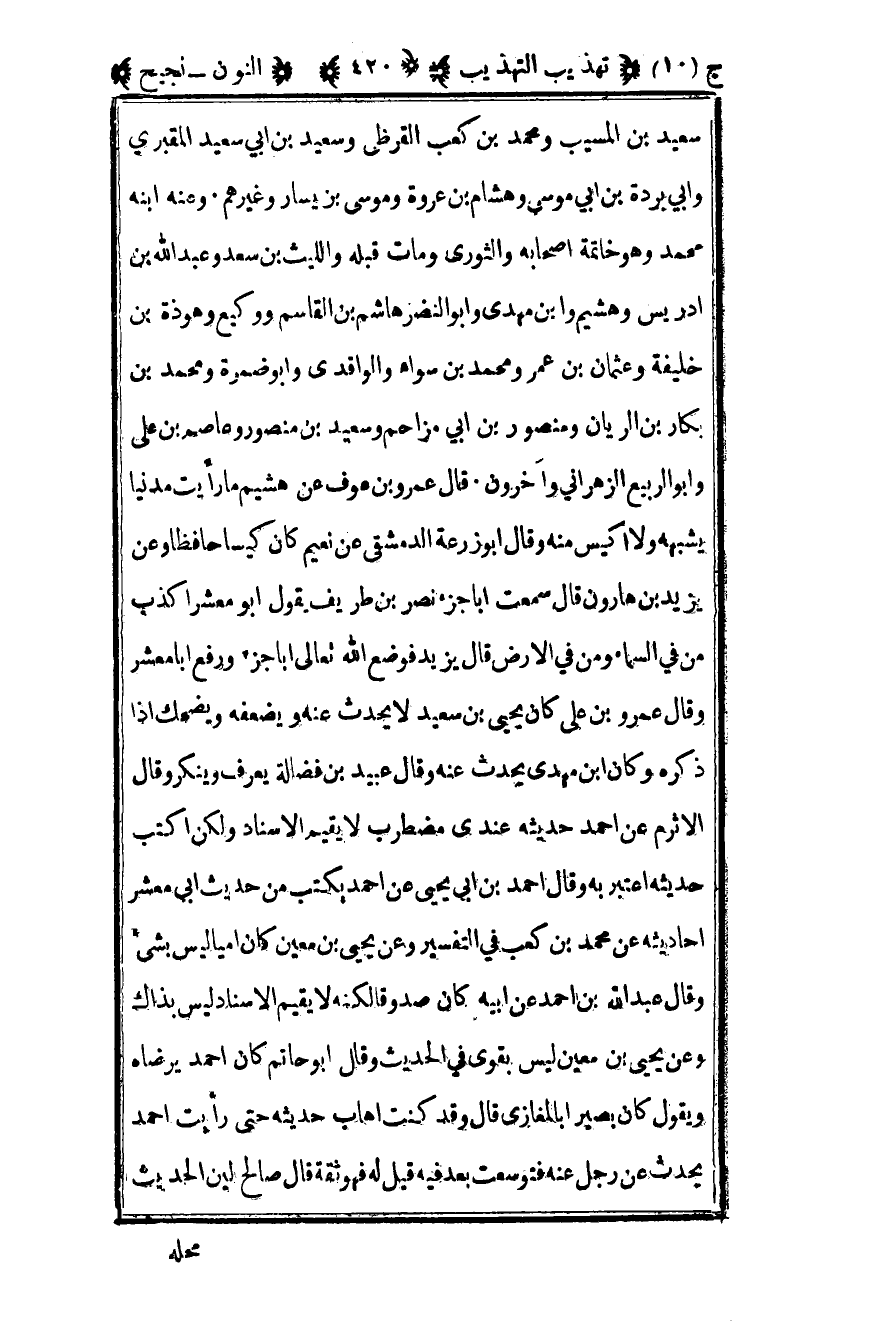 ج (١٠) تهذيب التهذيب ٤٢٠ النون ــ نجيح
سعيد بن المسيب ومحمد بن كعب القرظي وسعيد بن ابي سعيد المقبري
وابي بردة بن ابي موسي وهشام بن عروة وموسى بن يسار وغيرهم · وعنه ابنه
محمد وهو خاتمة اصحابه والثورى ومات قبله والليث بن سعد وعبد الله بن
ادريس وهشيم وابن مهدى وابو النضر هاشم بن القاسم ووكيع وهوذة بن
خليفة وعثمان بن عمر ومحمد بن سواء والواقدى وابو ضمرة ومحمد بن
بكار بن الريان ومنصور بن ابي مزاحم وسعيد بن منصور وعاصم بن على
وابو الربيع الزهراني وآخرون · قال عمرو بن عوف عن هشيم ما رأيت مدنيا
يشبهه ولا اكيس منه وقال ابو زرعة الدمشقي عن نعيم كان كيسا حافظا وعن
يزيد بن هارون قال سمعت اباجزء نصر بن طريف يقول ابو معشر اكذب
من في السماء ومن في الارض قال يزيد فوضع الله تعالى اباجزء ورفع ابا معشر
وقال عمرو بن على كان يحيى بن سعيد لا يحدث عنه ويضعفه ويضحك اذا
ذكره وكان ابن مهدى يحدث عنه وقال عبيد بن فضالة يعرف وينكر وقال
الاثرم عن احمد حديثه عندى مضطرب لا يقيم الاسناد ولكن اكتب
حديثه اعتبر به وقال احمد بن ابي يحيى عن احمد يكتب من حديث ابي معشر
احاديثه عن محمد بن كعب في التفسير وعن يحيى بن معين كان اميا ليس بشئ
وقال عبد الله بن احمد عن ابيه كان صدوقا لكنه لا يقيم الاسناد ليس بذاك
وعن يحيى بن معين ليس بقوى في الحديث وقال ابو حاتم كان احمد يرضاه
ويقول كان بصيرا بالمغازى قال وقد كنت اهاب حديثه حتى رأيت احمد
يحدث عن رجل عنه فتوسعت بعد فيه قيل له فهو ثقة قال صالح لين الحديث
محله